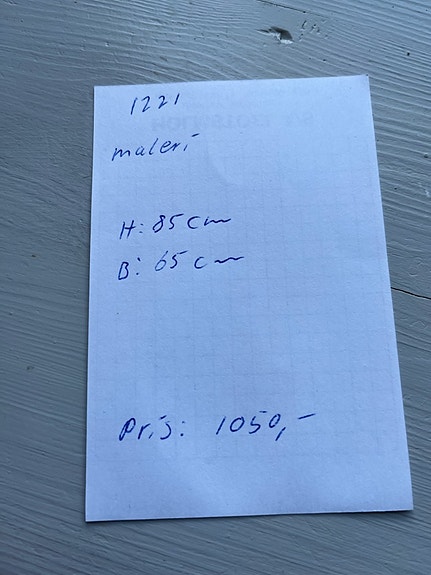 1221
maleri
H: 85 cm
B: 65 cm
Pris: 1050,-